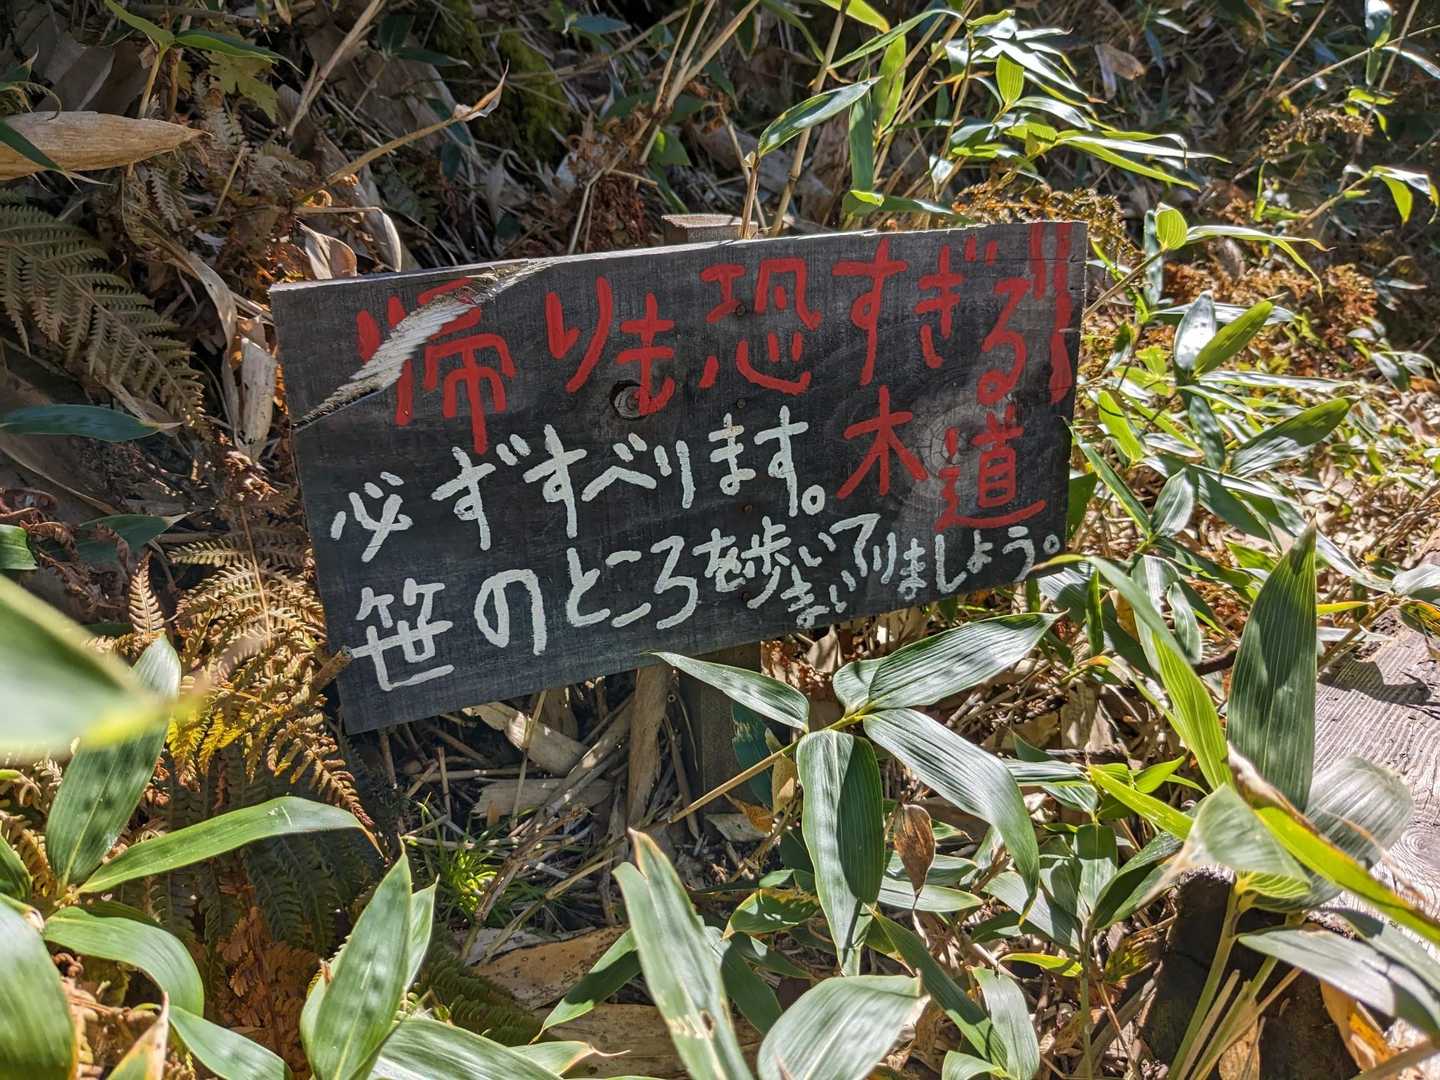 帰りも恐すぎる
木道
必ずすべります。
笹のところを歩いてまいりましょう。